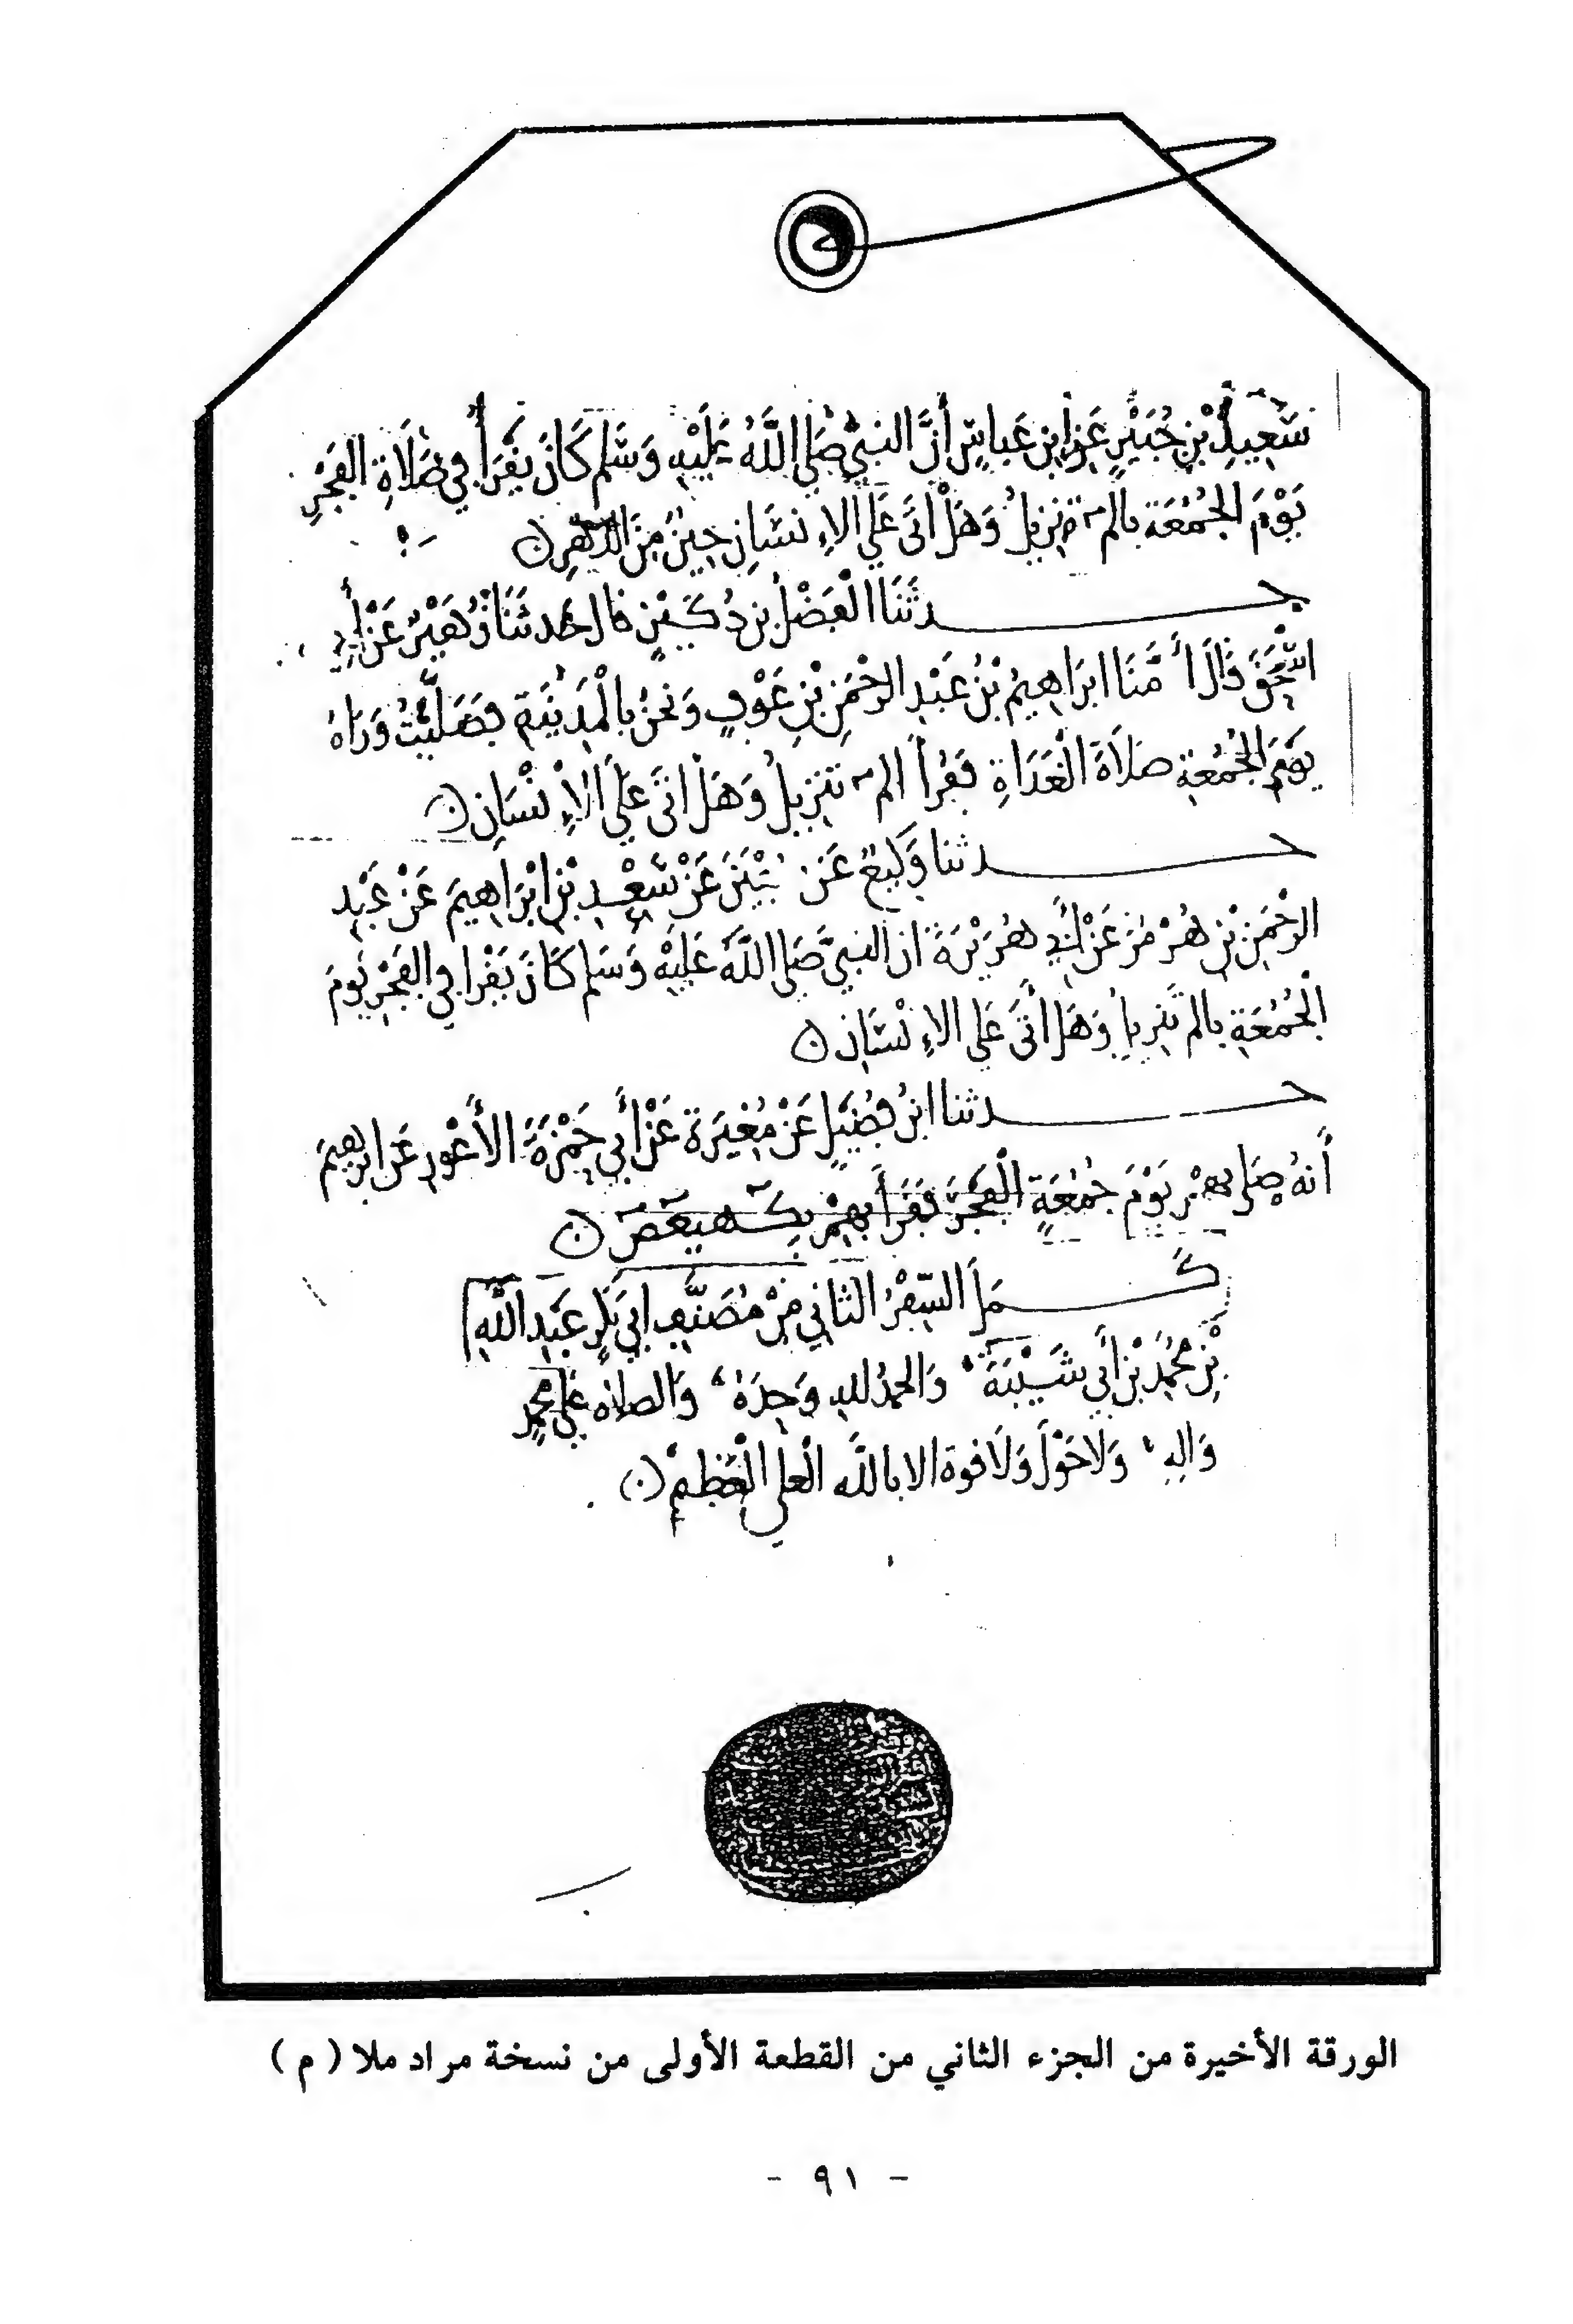 سَعِيدِ بْنِ جُبَيْرٍ عَنِ ابن عَباسٍ أَنَّ النبيَّ صَلى اللَّهُ عَلَيْهِ وَسَلم كَانَ يَقْرَأُ في صَلَاةِ الفَجْرِ
يَوْمَ الجُمُعَة بالم تنزيلُ وَهَلْ أتَى عَلى الإِنسَانِ حِينٌ مِنَ الدَّهْرِ
حدثَنَا الْفَضْلُ بن دُكَيْنٍ قال حَدثَنَا زُهَيْرٌ عَنْ أَبِي
إِسْحَقَ قَالَ أَمَّنَا ابرَاهِيمُ بْنُ عَبْدِ الرحْمَنِ بْنِ عَوْفٍ وَنَحنُ بالْمَدِينَةِ فَصَلَّيْتُ وَرَاهُ
يَوْمَ الجُمُعَةِ صَلَاةَ الْغَدَاةِ فَقَرأ الم تنزيلُ وَهَلْ أتَى عَلَى الإِنْسَانِ
حدثنا وَكِيعٌ عَنْ عَنْ سَعْدِ بْنِ ابْرَاهِيمَ عَنْ عَبْدِ
الرحْمَنِ بْنِ هُرْمُزَ عَنْ أَبِي هُرَيْرَةَ ان النبيَّ صَلى اللَّهُ عَلَيْهِ وَسَلم كَانَ يَقْرا في الفَجْرِ يَوْمَ
الْجُمُعَةِ بالم تَنزيلُ وَهَلْ أتَى عَلى الإِنْسَانِ
حدثنا ابنُ فُضَيلٍ عَنْ مُغِيرَة عَنْ أَبي حَمْزَةَ الأَعْوَرِ عَن ابرهِيمَ
أَنهُ صَلى بِهِمْ يَوْمَ جُمُعَةٍ الْفَجْرَ فَقَرَأَ بِهِمْ بِكهيعص
كَمَلَ السِّفْرُ الثاني مِنْ مُصَنَّفِ ابي بَكْرٍ عَبْدِ اللَّهِ
بْنِ مُحَمَّدِ بْنِ أَبي شَيْبَةَ وَالحمدُ للهِ وَحْدَهُ وَالصلاه عَلى محمدٍ
وَالِهِ وَلَا حَوْلَ وَلَا قوة الا بالله العلي الْعَظِيمِ
الورقة الأخيرة من الجزء الثاني من القطعة الأولى من نسخة مراد ملا ( م )
- ٩١ -